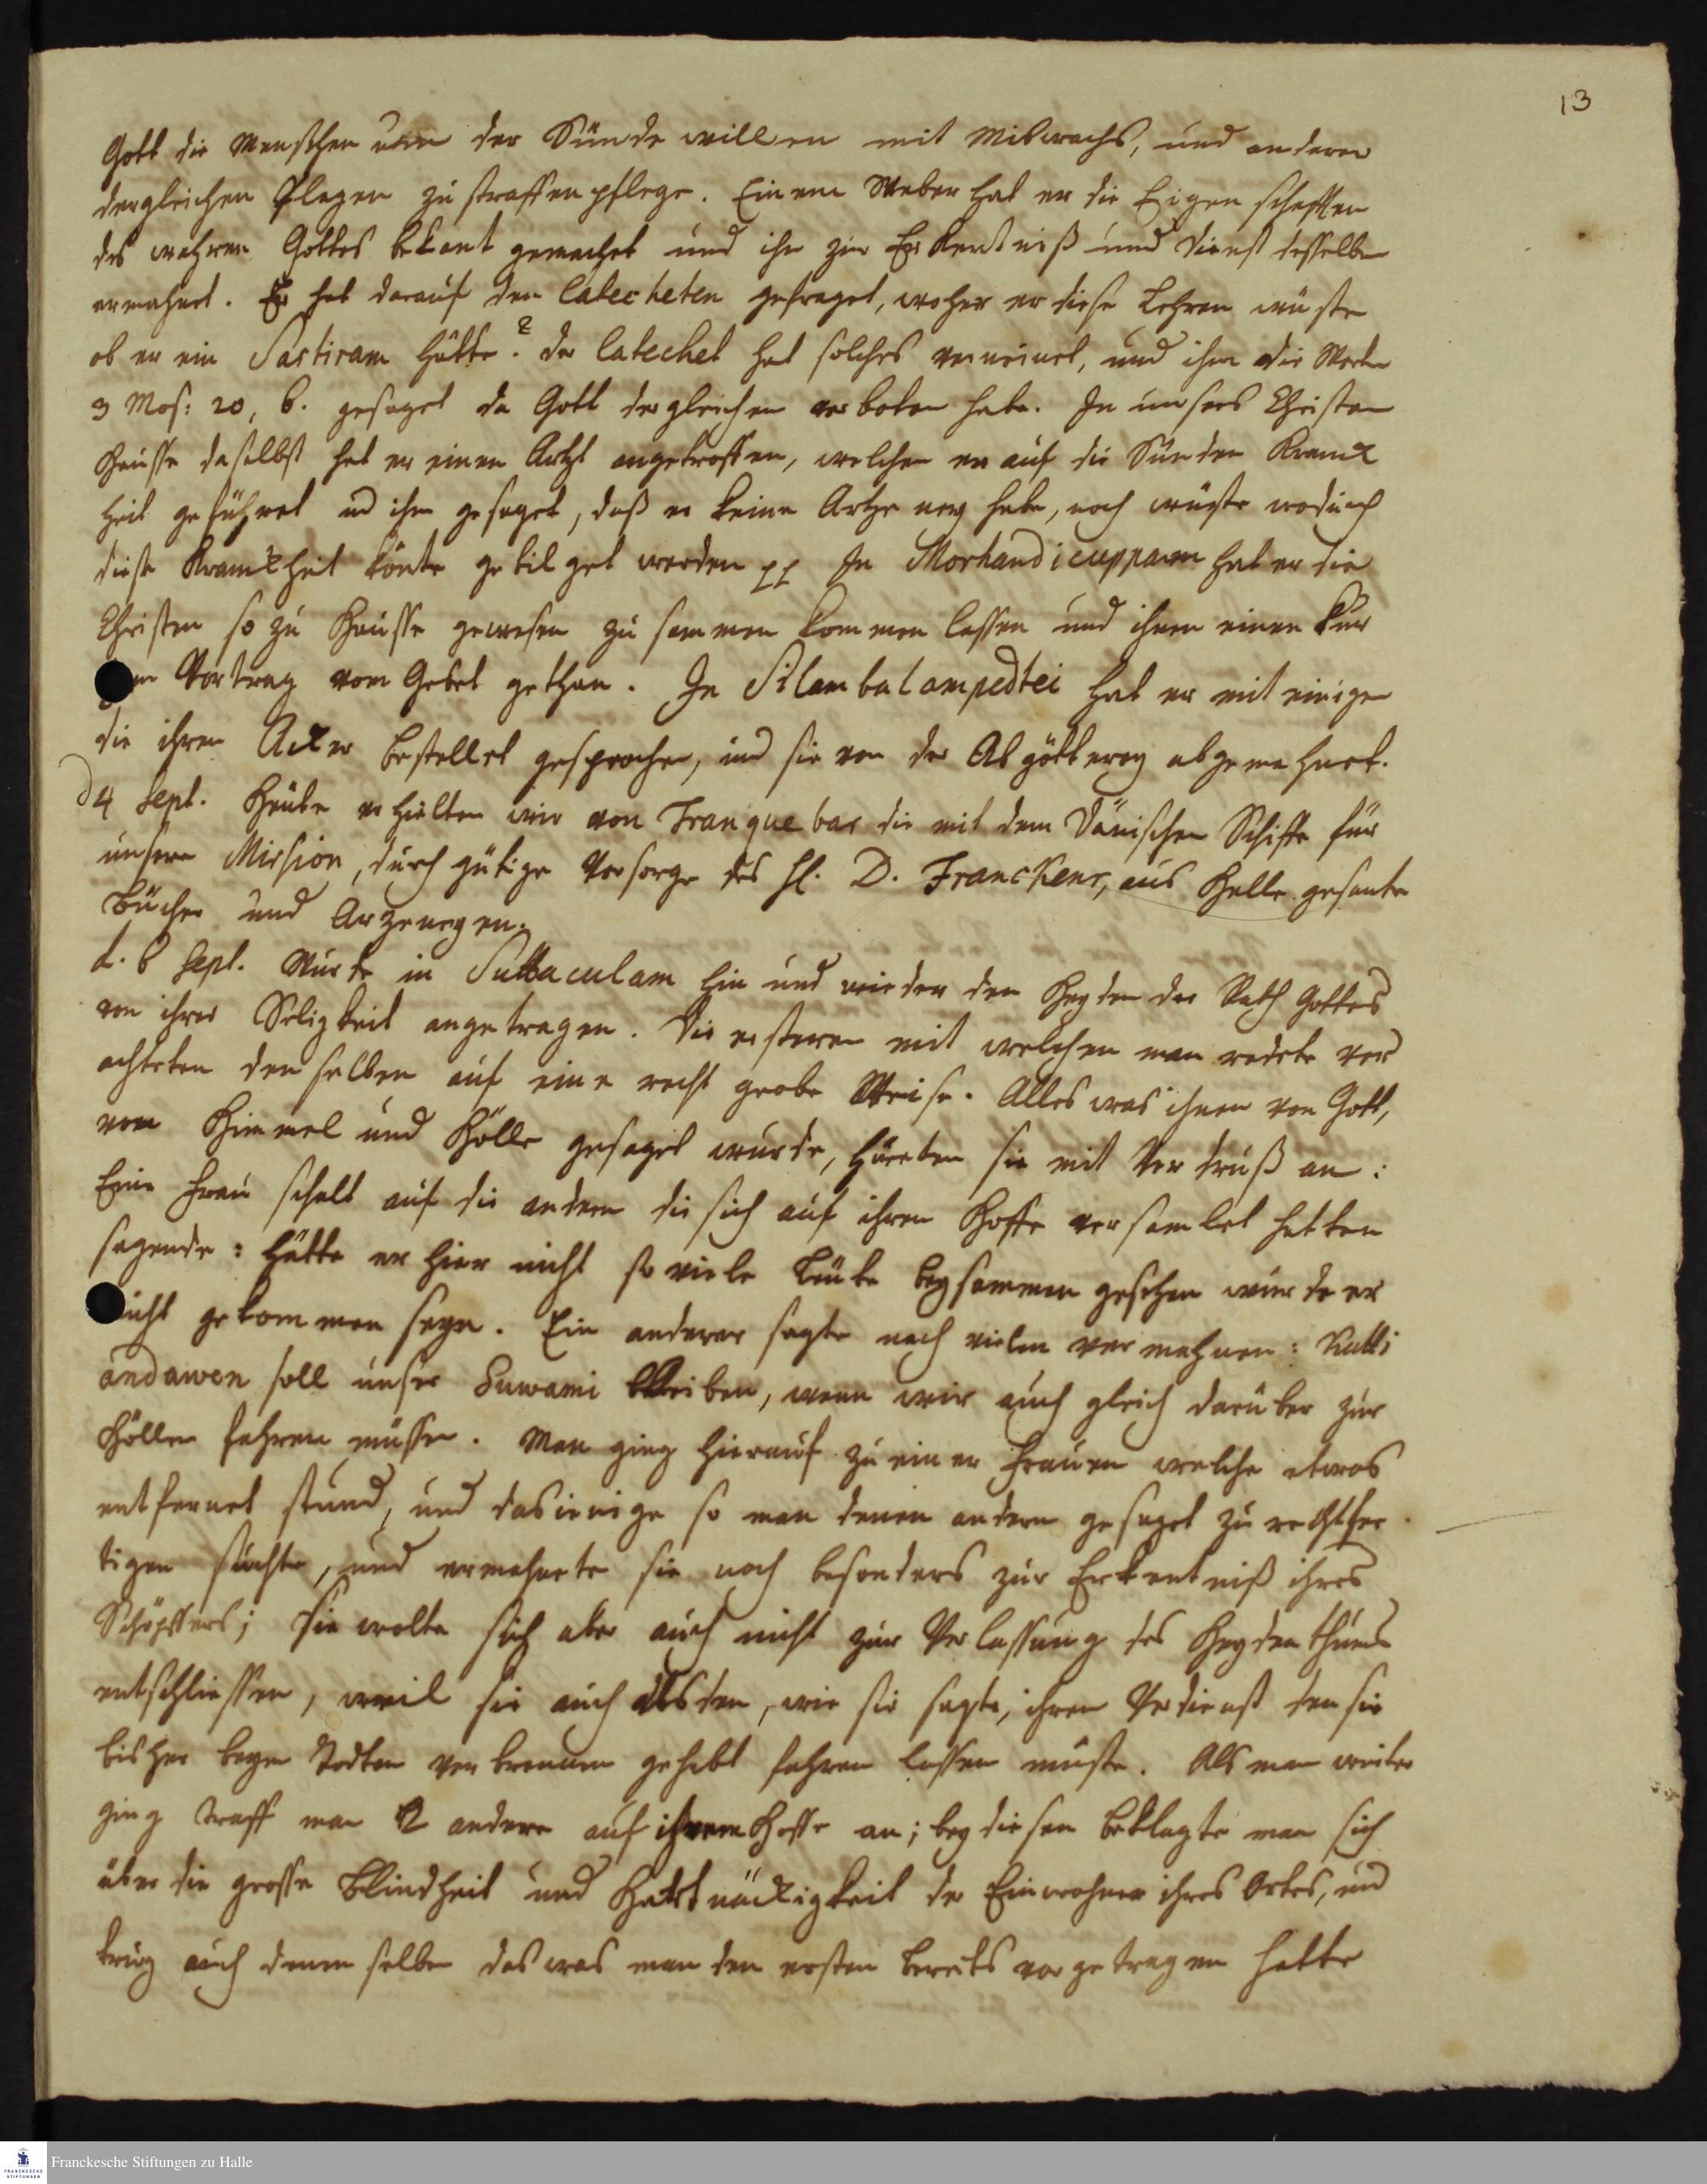 13
Gott die Menschen um der Sünde willen mit Miswachs, und anderen
dergleichen Plagen zu straffen pflege. Einem Weber hat er die Eigenschafften
des wahren Gottes bekant gemachet und ihn zur Erkentniß und Dienst desselben
ermahnet. Er hat darauf den Catecheten gefraget, woher er diese Lehren wüste
ob er ein Sastiram hätte? der Catechet hat solches verneinet, und ihm die Worte
3 Mos: 20, 6. gesaget da Gott dergleichen verboten habe. In unsers Christen
Hausse daselbst hat er einen Artzt angetroffen, welchen er auf die Sünden Kranck
heit geführet und ihm gesaget, daß er keine Artzeney habe, noch wüste wodurch
diese Kranckheit könte getilget werden pp In Morhandicuppam hat er die
Christen so zu Hausse gewesen zusammen kommen lassen und ihnen einen kur
en Vortrag vom Gebet gethan. In Silambalampedtei hat er mit einigen
die ihren Acker bestellet gesprochen, und sie von der Abgötterey abgemahnet.
d 4 Sept. Heute erhielten wir von Tranquebar die mit dem Dänischen Schiffe für
unsere Mission, durch gütige Vorsorge des H. D. Franckens, aus Halle gesante
Bücher und Arzeneyen.
d. 6 Sept. Wurde in Suttaculam hin und wieder den Heyden der Rath Gottes
von ihrer Seligkeit angetragen. Die ersteren mit welchen man redete ver
achteten denselben auf eine recht grobe Weise. Alles was ihnen von Gott,
vom Himmel und Hölle gesaget wurde, höreten sie mit Verdruß an:
Eine Frau schalt auf die andern die sich auf ihren Hoffe versamlet hatten
sagende: hätte er hier nicht so viele Leute beysammen gesehen würde er
icht gekommen seyn. Ein anderer sagte nach vielen vermahnen: Katti
andawen soll unser Suwami bleiben, wenn wir auch gleich darüber zur
Höllen fahren müssen. Man ging hierauf zu einer Frauen welche etwas
entfernet stund, und dasienige so man denen andern gesaget zu rechtfer
tigen suchte, und ermahnete sie noch besonders zur Erkentniß ihres
Schöpffers; sie wolte sich aber auch nicht zur Verlassung des Heydenthums
entschliessen, weil sie auch alsden, wie sie sagte, ihren Verdienst den sie
bisher beym Todten verbrennen gehabt fahren lassen müste. Als man weiter
ging traff man 2 andere auf ihrem Hoffe an; bey diesen beklagte man sich
über die grosse Blindheit und Hartnäckigkeit der Einwohner ihres Ortes, und
trug auch denenselben das was man den ersten bereits vorgetragen hatte
Franckesche Stiftungen zu Halle